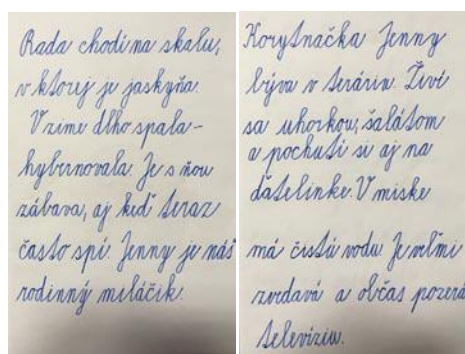 Rada chodí na skalu,
v ktorej je jaskyňa.
V zime dlho spala-
hybernovala. Je s ňou
zábava, aj keď teraz
často spí. Jenny je náš
rodinný miláčik.
Korytnačka Jenny
býva v teráriu. Živí
sa uhorkou, šalátom
a pochutí si aj na
ďatelinke. V miske
má čistú vodu. Je veľmi
zvedavá a občas pozerá
televíziu.